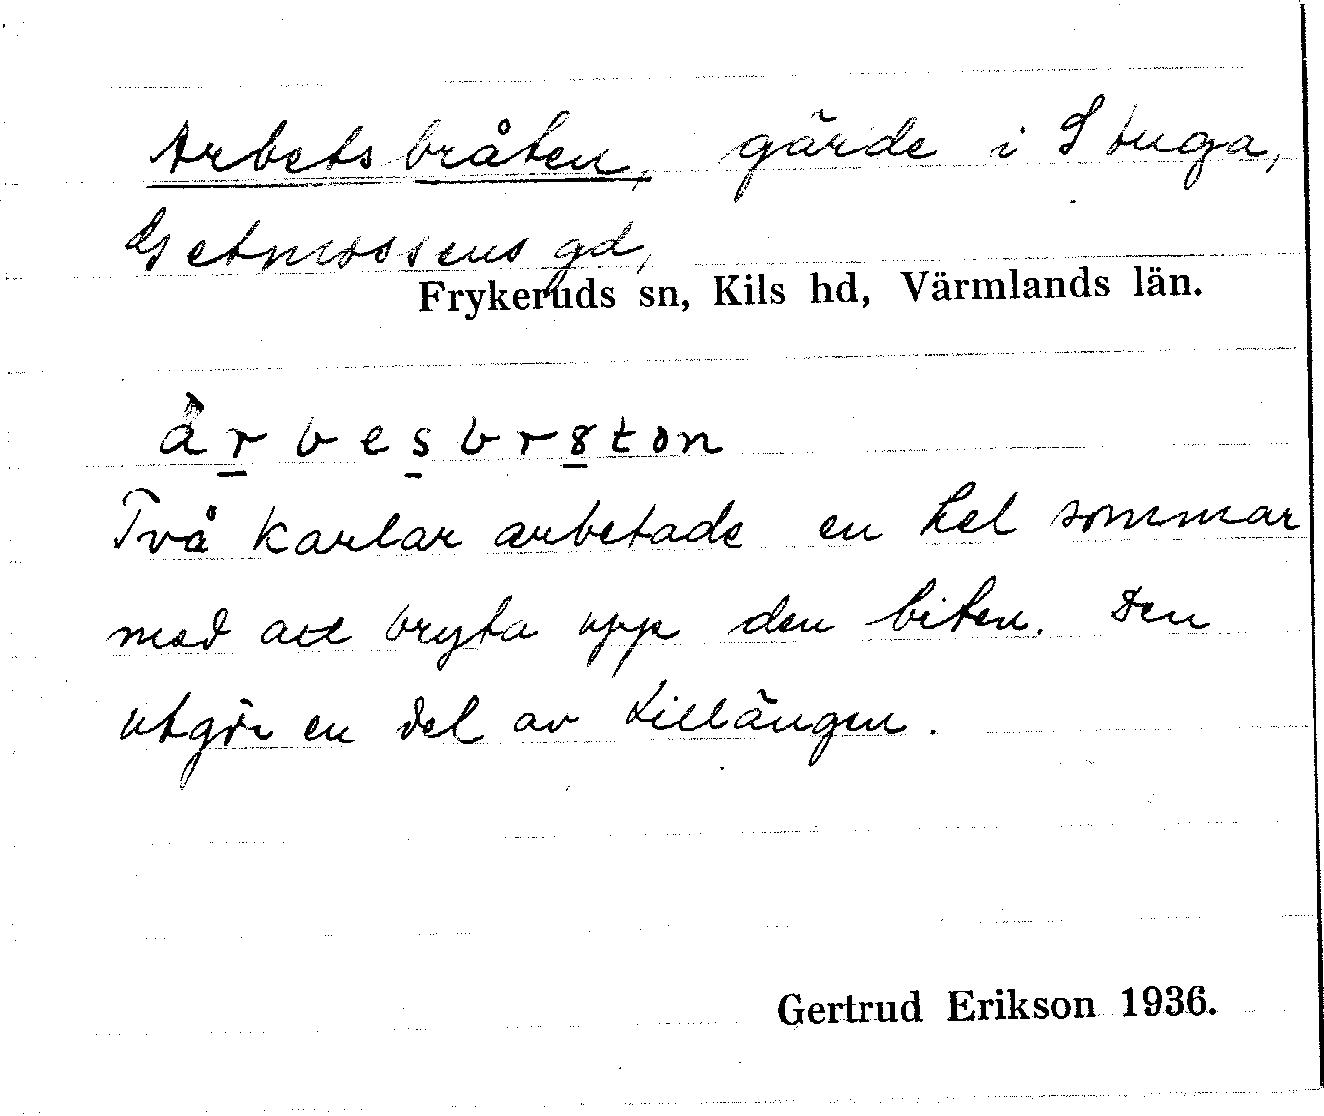 Arbetsbråten, gärde i Stuga,
Getmossens gd,
Frykeruds sn, Kils hd, Värmlands län.
àrbesbrɤton
Två karlar arbetade en hel sommar
med att bryta upp den biten. Den
utgör en del av Lillängen.
Gertrud Erikson 1936.